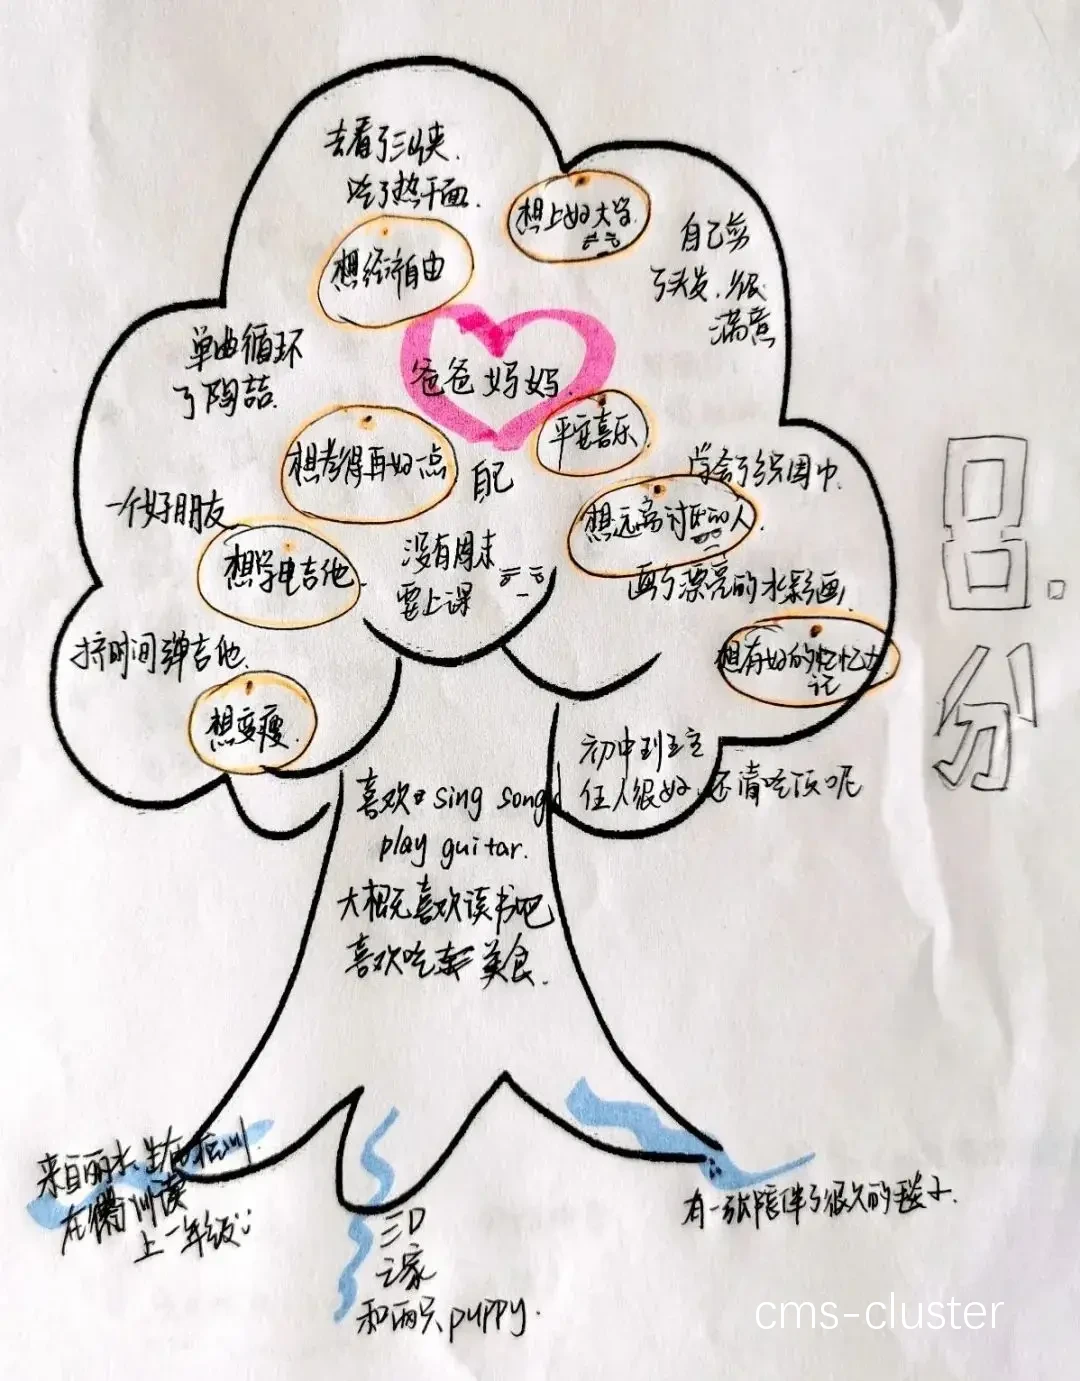 去看了三峡.
吃了热干面.
想上好大学.
自己剪
了头发.很
满意
想经济自由
单曲循环
了陶喆.
爸爸 妈妈.
平安喜乐
想考得再好一点
自己
学会了织围巾.
一个好朋友
想远离讨厌的人.
想学电吉他.
没有周末
要上课
画了漂亮的水彩画,
抟时间弹吉他.
想有好的忆力
记
想变瘦.
初中班主
任人很好,还请吃饭呢
喜欢 sing song
play guitar.
大概无喜欢读书吧
喜欢吃 美食.
来自丽水、生在
在 上一年级
有一张陪伴了很久的毯子.
三口
之家
和两只puppy.
吕.
分
cms-cluster